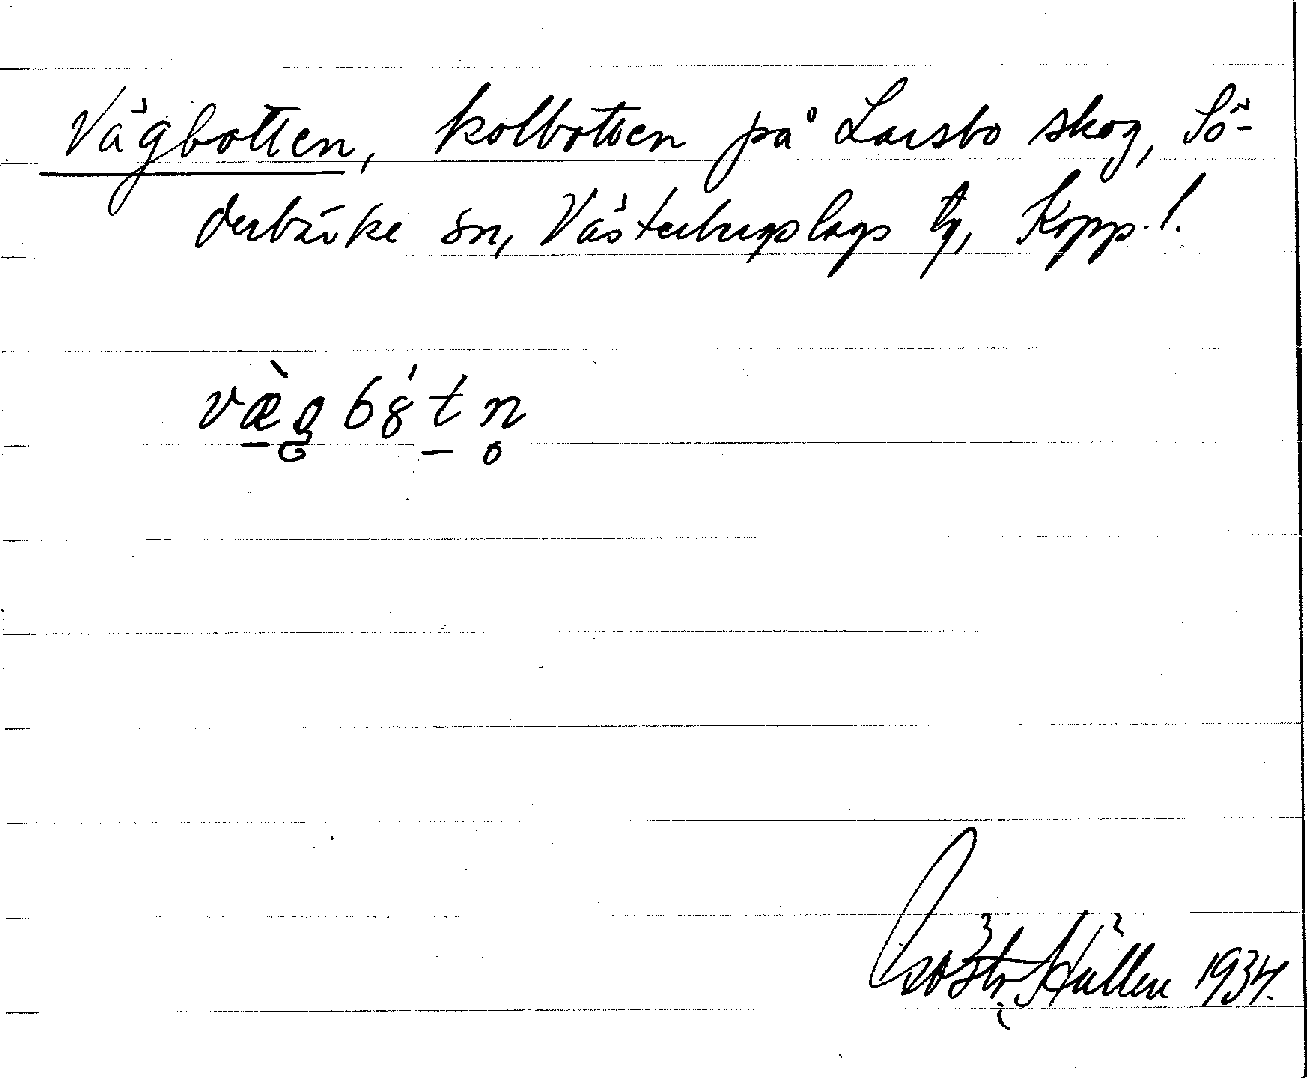 Vägbotten, kolbotten på Larsbo skog, Sö-
derbärke sn, Västerbergslags tg, Kopp. l.
1934.